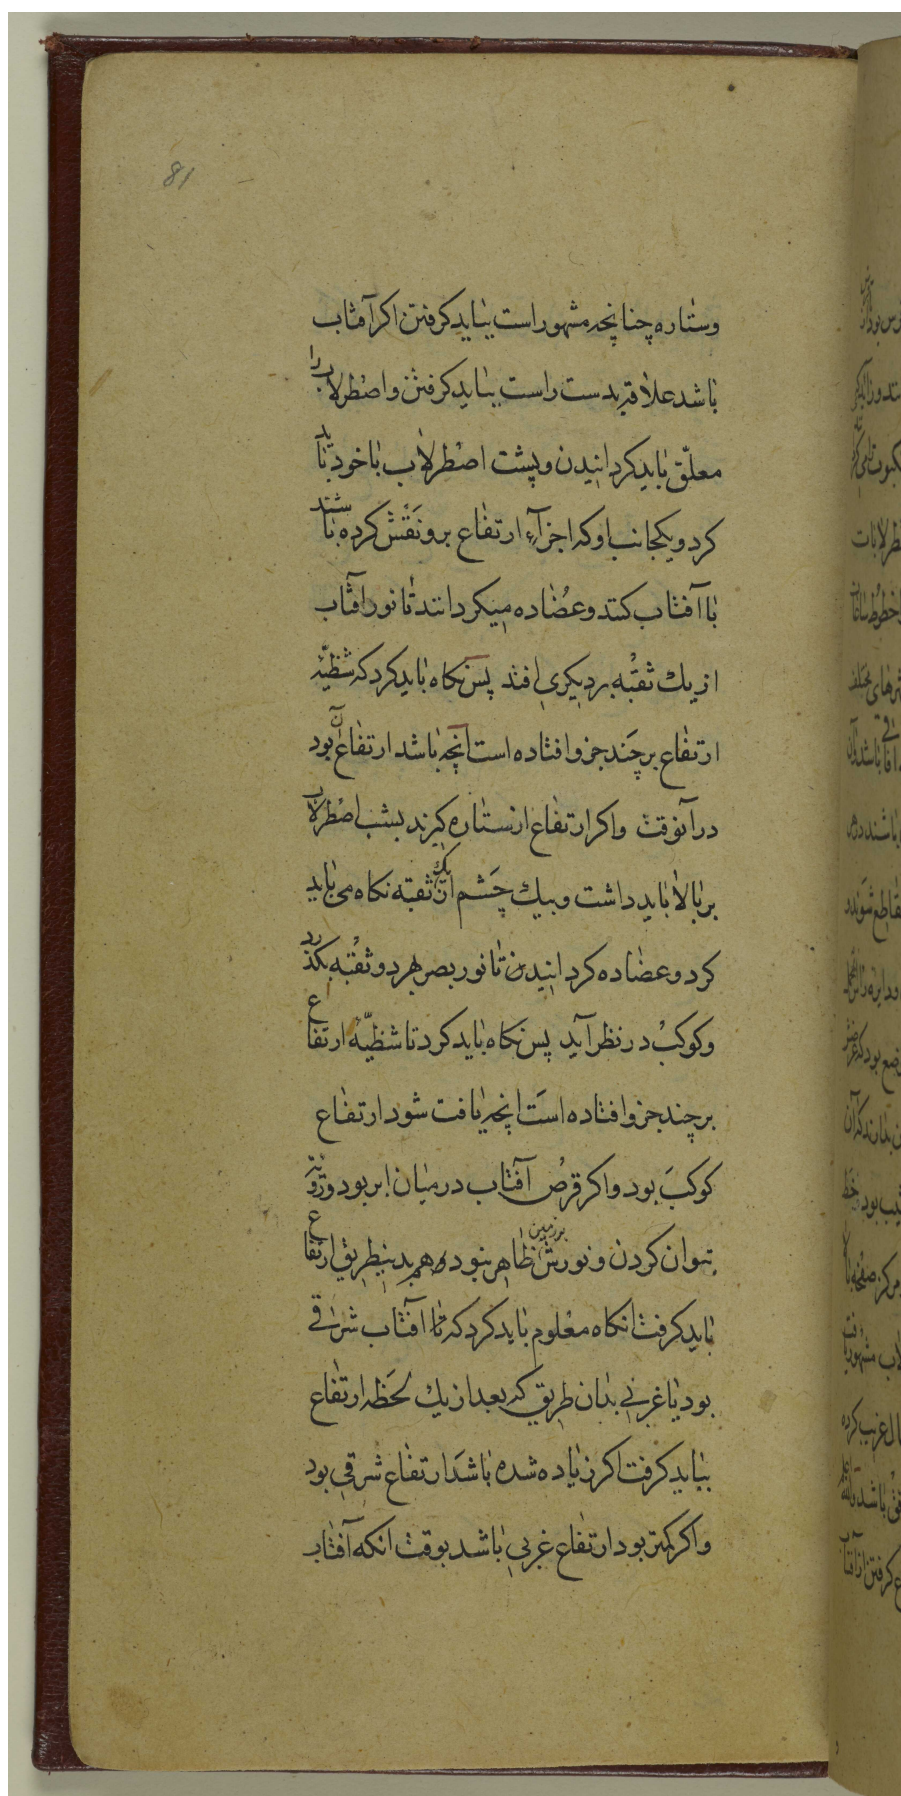 81
وستاره چنانچه مشهور است بباید کرفتن اکر آفتاب
باشد علاقه بدست راست بباید کرفتن و اصطرلاب را
معلّق باید کردانیدن و پشت اصطرلاب با خود باید
کرد و یکجانب او که اجزآء ارتفاع برو نقش کرده باشند
با آفتاب کنند و عضاده میکردانند تا نور آفتاب
از یك ثقبه بر دیکری افتد پس نکاه باید کرد که شظیّه
ارتفاع بر چند جزو افتاده است آنچه باشد ارتفاع آن بود
در آنوقت واکر ارتفاع از ستاره کیرند بشب اصطرلاب
بر بالا باید داشت و بیك چشم از یك ثقبه نکاه می باید
کرد و عضاده کردانیدن تا نور بصر بهر دو ثقبه بکذرد
و کوکب در نظر آید پس نکاه باید کرد تا شظیّهٔ ارتفاع
بر چند جزو افتاده است انچه یافت شود ارتفاع
کوکب بود واکر قرص آفتاب در میان ابر بود و رؤیة
بتوان کردن و نورش بر زمین ظاهر نبود هم بدینطریق ارتفاع
باید کرفت انکاه معلوم باید کرد که تا آفتاب شرقی
بود یا غربی بدان طریق که بعد از یك لحظه ارتفاع
بباید کرفت اکر زیاده شده باشد ارتفاع شرقی بود
واکر کمتر بود ارتفاع غربی باشد بوقت انکه آفتاب